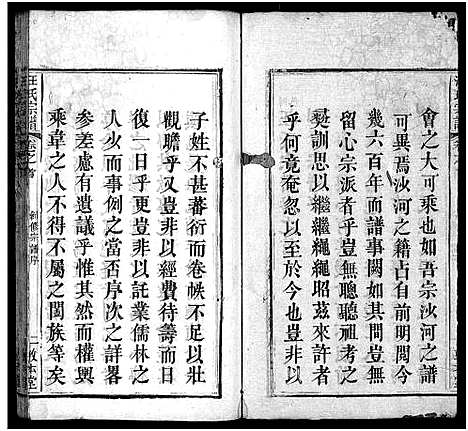 會之大可乘也如吾宗沙河之譜
可異焉沙河之籍占自有前明閲今
幾六百年而譜事闕如其間豈無
留心宗派者乎豈無聰聽祖考之
彝訓思以繼繼繩繩昭茲來許者
乎何竟奄忽以至於今也豈非以
子姓不甚蕃衍而卷帙不足以壯
觀瞻乎又豈非以經費待籌而日
復一日乎更豈非以託業儒林之
人少而事例之當否序次之詳畧
參差慮有遺議乎惟其然而權輿
乘韋之人不得不屬之閩族等矣
汪氏宗譜
卷之首
創修宗譜序
一
敦本堂